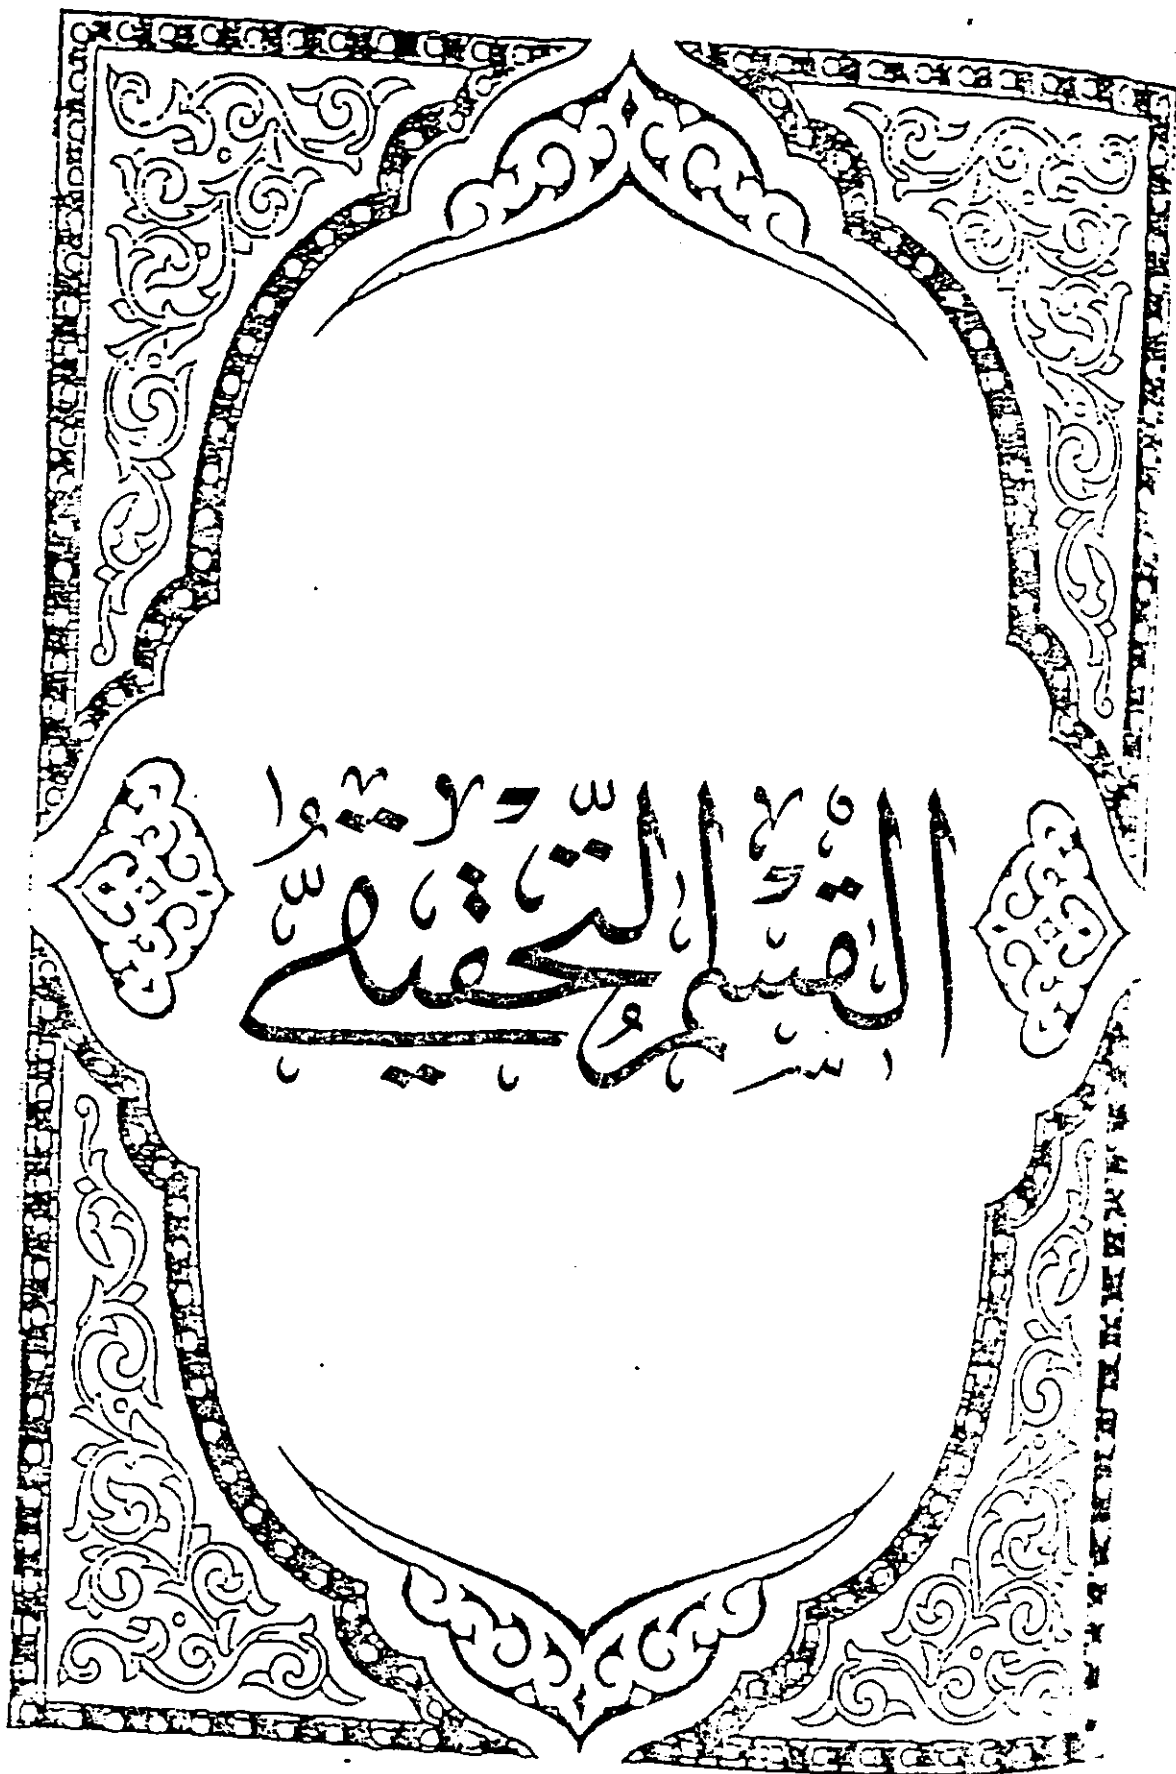 القسم التحقيقي